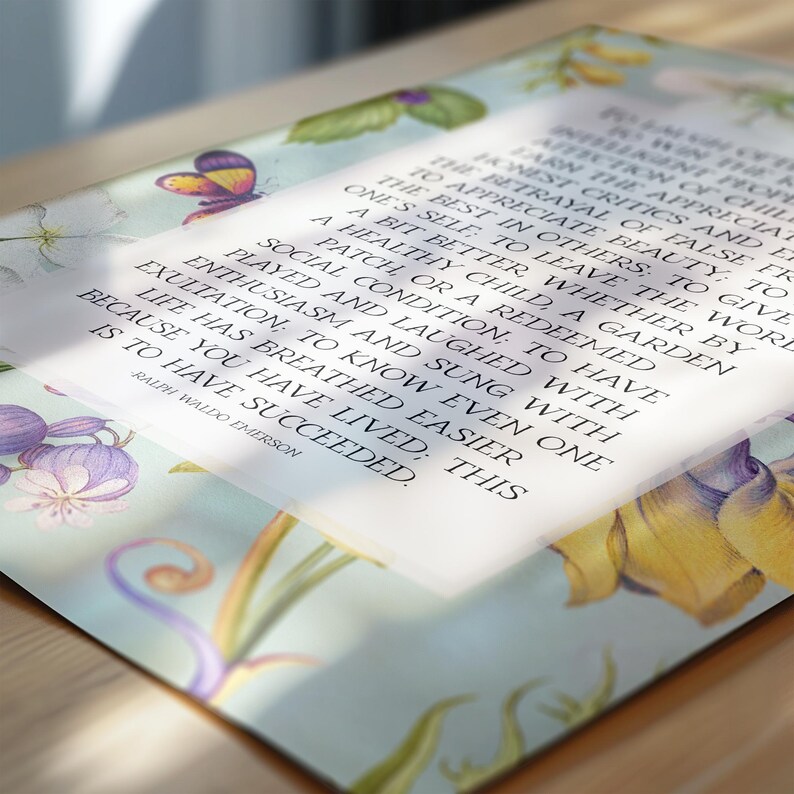 TO LAUGH OFTE
TO WIN THE
INTELLIGENT PEOPL
AFFECTION OF CHIL
EARN THE APPRECIA
HONEST CRITICS AND E
THE BETRAYAL OF FALSE FR
TO APPRECIATE BEAUTY; TO
THE BEST IN OTHERS; TO GIVE
ONE'S SELF; TO LEAVE THE WORL
A BIT BETTER, WHETHER BY
A HEALTHY CHILD, A GARDEN
PATCH, OR A REDEEMED
SOCIAL CONDITION; TO HAVE
PLAYED AND LAUGHED WITH
ENTHUSIASM AND SUNG WITH
EXULTATION; TO KNOW EVEN ONE
LIFE HAS BREATHED EASIER
BECAUSE YOU HAVE LIVED; THIS
IS TO HAVE SUCCEEDED.
-RALPH WALDO EMERSON